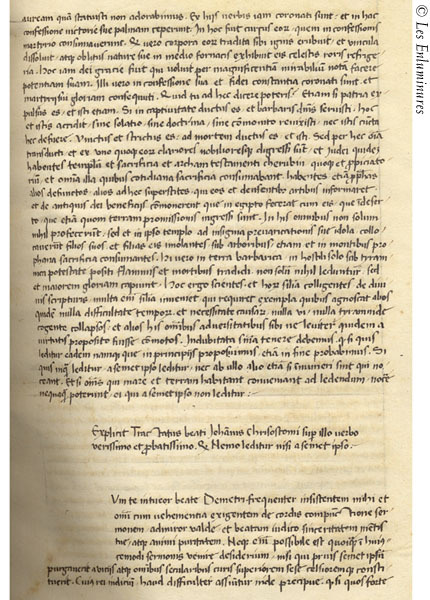 auream quā statuisti non adorabimus. Ex hijs verbis iam coronati sunt. et in hac
confessione victorie sue palmam ceperunt. In hoc fuit cursus eorum. quem in confessionis
martirio consumaverunt. & vero corpora eorum tradita sibi ignis eribuit. et vincula
dissoluit. atque oblitus nature sue in medio fornacis exhibuit eis celestis roris refrige
ria. Hoc iam dei gracie fuit qui voluit per magnificentiā mirabiliū notā facere
potentiam suam. Illi vero in confessione sua et fidei constantia coronati sunt. et
martirij sui gloriam consequuti. Quid tu ad hec dicere poteris. Etiam si patria ex
pulsus es. et isti etiam. Si in captivitate ductus es. et barbaris dnis servisti. hoc
et istis accidit. sine solatio. sine doctrina
hec deficere. Vinctus et strictus es. ad mortem ductus es. et isti. Sed per hec omia
habentes templū et sacrificia et archam testamenti cherubin
rium. et omia illa quibus cotidiana sacrificia consumabant. habentes etiā
alios defunctos. alios adhec superstites. qui eos et de instantibus informarent.
et de antiquis dei beneficijs commonerent. que in egipto fecerat cum eis. que i deser
to. que etiā quom terram promissionis ingressi sunt. In his omnibus non solum
nihil profecerunt. sed et in ipso templo ad insignia prevaricationis sue idola collo
caverunt filios suos et filias eis imolantes sub arboribus etiam et in montibus pro
phana sacrificia consumantes. Hi vero in terra barbarica. in hostili solo sub tyran
nica potestate positi. flammis et mortibus traditi. non solū nihil leduntur. sed
et maiorem gloriam capiunt. Hoc ergo scientes. et horum similia colligentes de divi
nis scripturis. multa enim similia inveniet. qui requiret exempla quibus agnoscat alios
quidē nulla difficultate temporum. et necessitate causarum. nulla vi. nulla tyrannide
cogente collapsos. et alios his omibus adversitatibus sibi ne leviter quidem a
virtutis proposito fuisse commotos. Indubitata sententia tenere debemus. quod si quis
leditur eadem namque que in principijs proposuimus. etiā in fine probabimus. Si
quis inquam leditur. a semet ipso leditur. nec ab ullo alio etiā si innumeri sint qui no
ceant. Et si omes qui mare et terram habitant conveniant ad ledendum. noce
re nequaquam poterunt. ei qui a semet ipso non leditur:
Explicit Tractatus beati Iohānis Chrisostomi super illo verbo
verissimo et probatissimo. & Nemo leditur nisi a semet ipso.
Um te intueor beate Demetri frequenter insistentem mihi et
omi cum vehementia exigentem de cordis compunctione ser
monem. admiror valde. et beatam iudico sinceritatem mentis
tue. atque animi puritatem. Neque enim possibile est quemque i huius
cemodi sermonis venire desiderium. nisi qui prius semet ipsū
purgaverit a vitijs. atque omnibus secularibus curis superiorem sese celsioremque consti
tuerit. haud difficulter assūitur inde precipue. quod si quos forte
© Les Enluminures